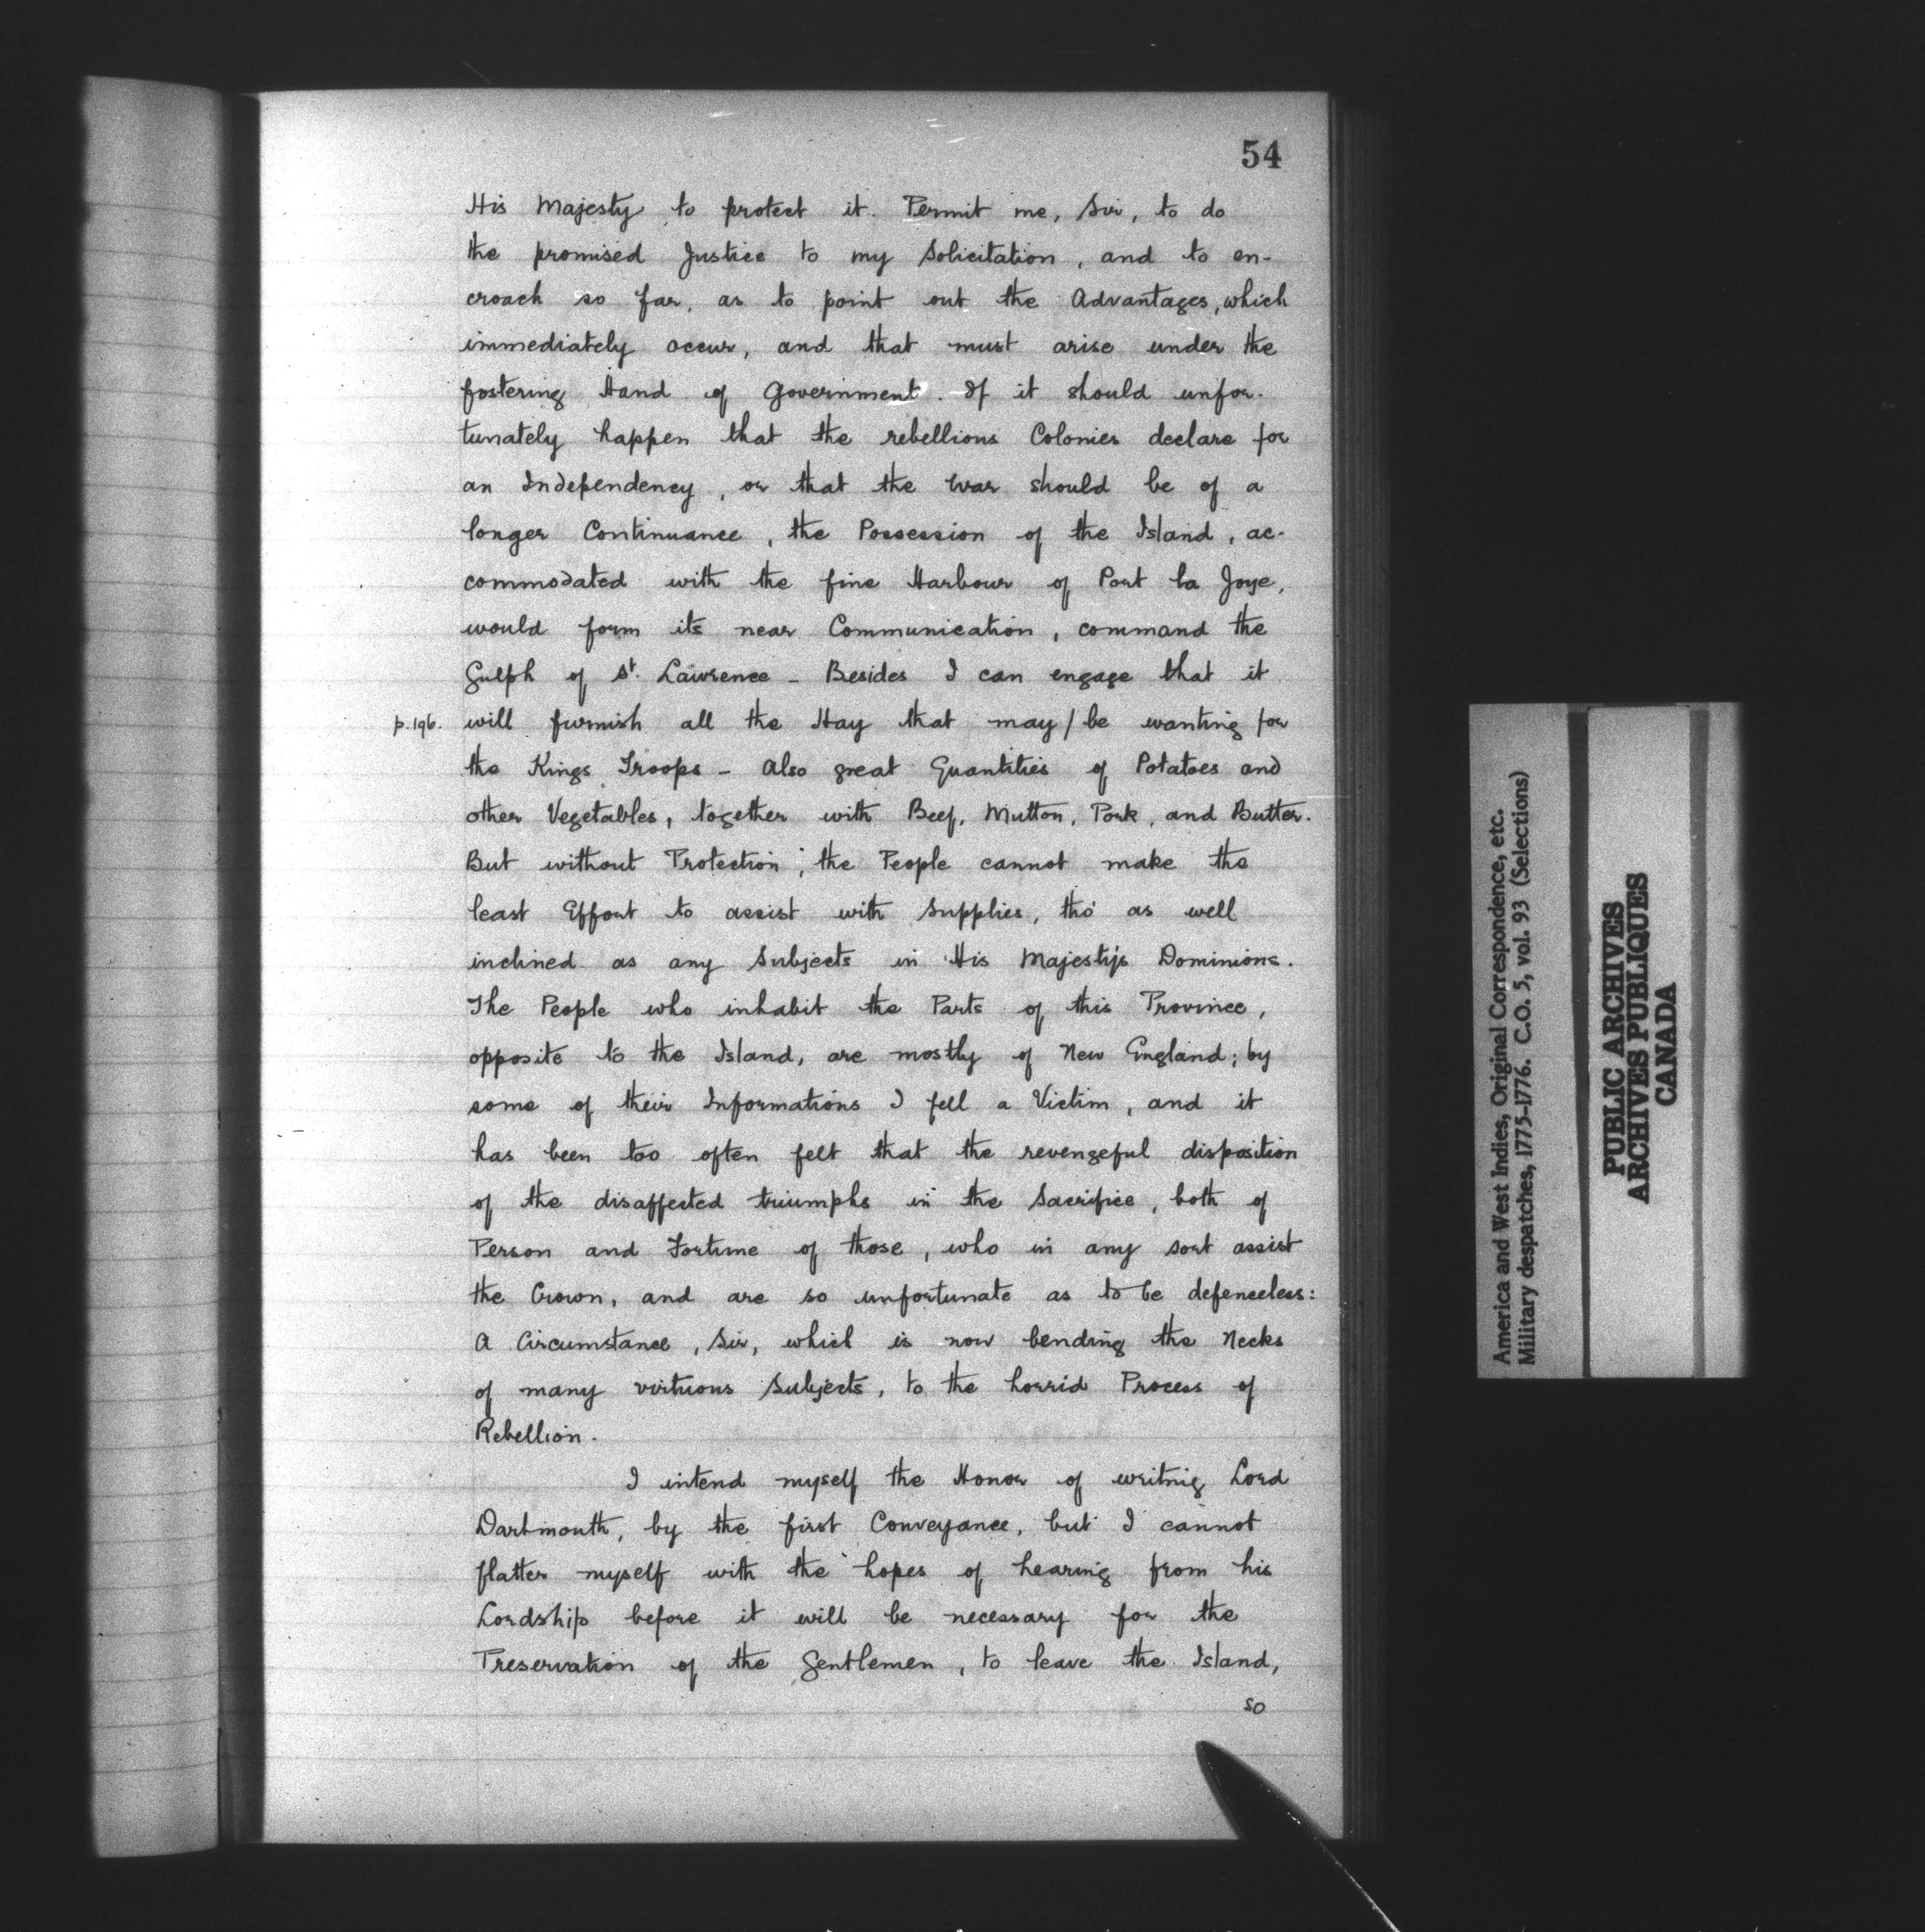 54
His Majesty to protect it. Permit me, Sir, to do
the promised Justice to my Solicitation, and to en-
croach so far, as to point out the Advantages, which
immediately occur, and that must arise under the
fostering Hand of Government. If it should unfor-
tunately happen that the rebellious Colonies declare for
an Independency, or that the War should be of a
longer Continuance, the Possession of the Island, ac-
commodated with the fine Harbour of Port la Joye,
would form its near Communication, command the
Gulph of St. Lawrence - Besides I can engage that it
p.196. will furnish all the Hay that may / be wanting for
the Kings Troops - Also great Quantities of Potatoes and
other Vegetables, together with Beef, Mutton, Pork, and Butter.
But without Protection, the People cannot make the
least Effort to assist with Supplies, tho' as well
inclined as any Subjects in His Majesty's Dominions.
The People who inhabit the Parts of this Province,
opposite to the Island, are mostly of New England; by
some of their Informations I fell a Victim, and it
has been too often felt that the revengeful disposition
of the disaffected triumphs in the Sacrifice, both of
Person and Fortune of those, who in any sort assist
the Crown, and are so unfortunate as to be defenceless:
A Circumstance, Sir, which is now bending the Necks
of many virtuous Subjects, to the horrid Process of
Rebellion.
I intend myself the Honor of writing Lord
Dartmouth, by the first Conveyance, but I cannot
flatter myself with the hopes of hearing from his
Lordship before it will be necessary for the
Preservation of the Gentlemen, to leave the Island,
so
America and West Indies, Original Correspondence, etc.
Military despatches, 1775-1776. C.O. 5, vol. 93 (Selections)
PUBLIC ARCHIVES
ARCHIVES PUBLIQUES
CANADA